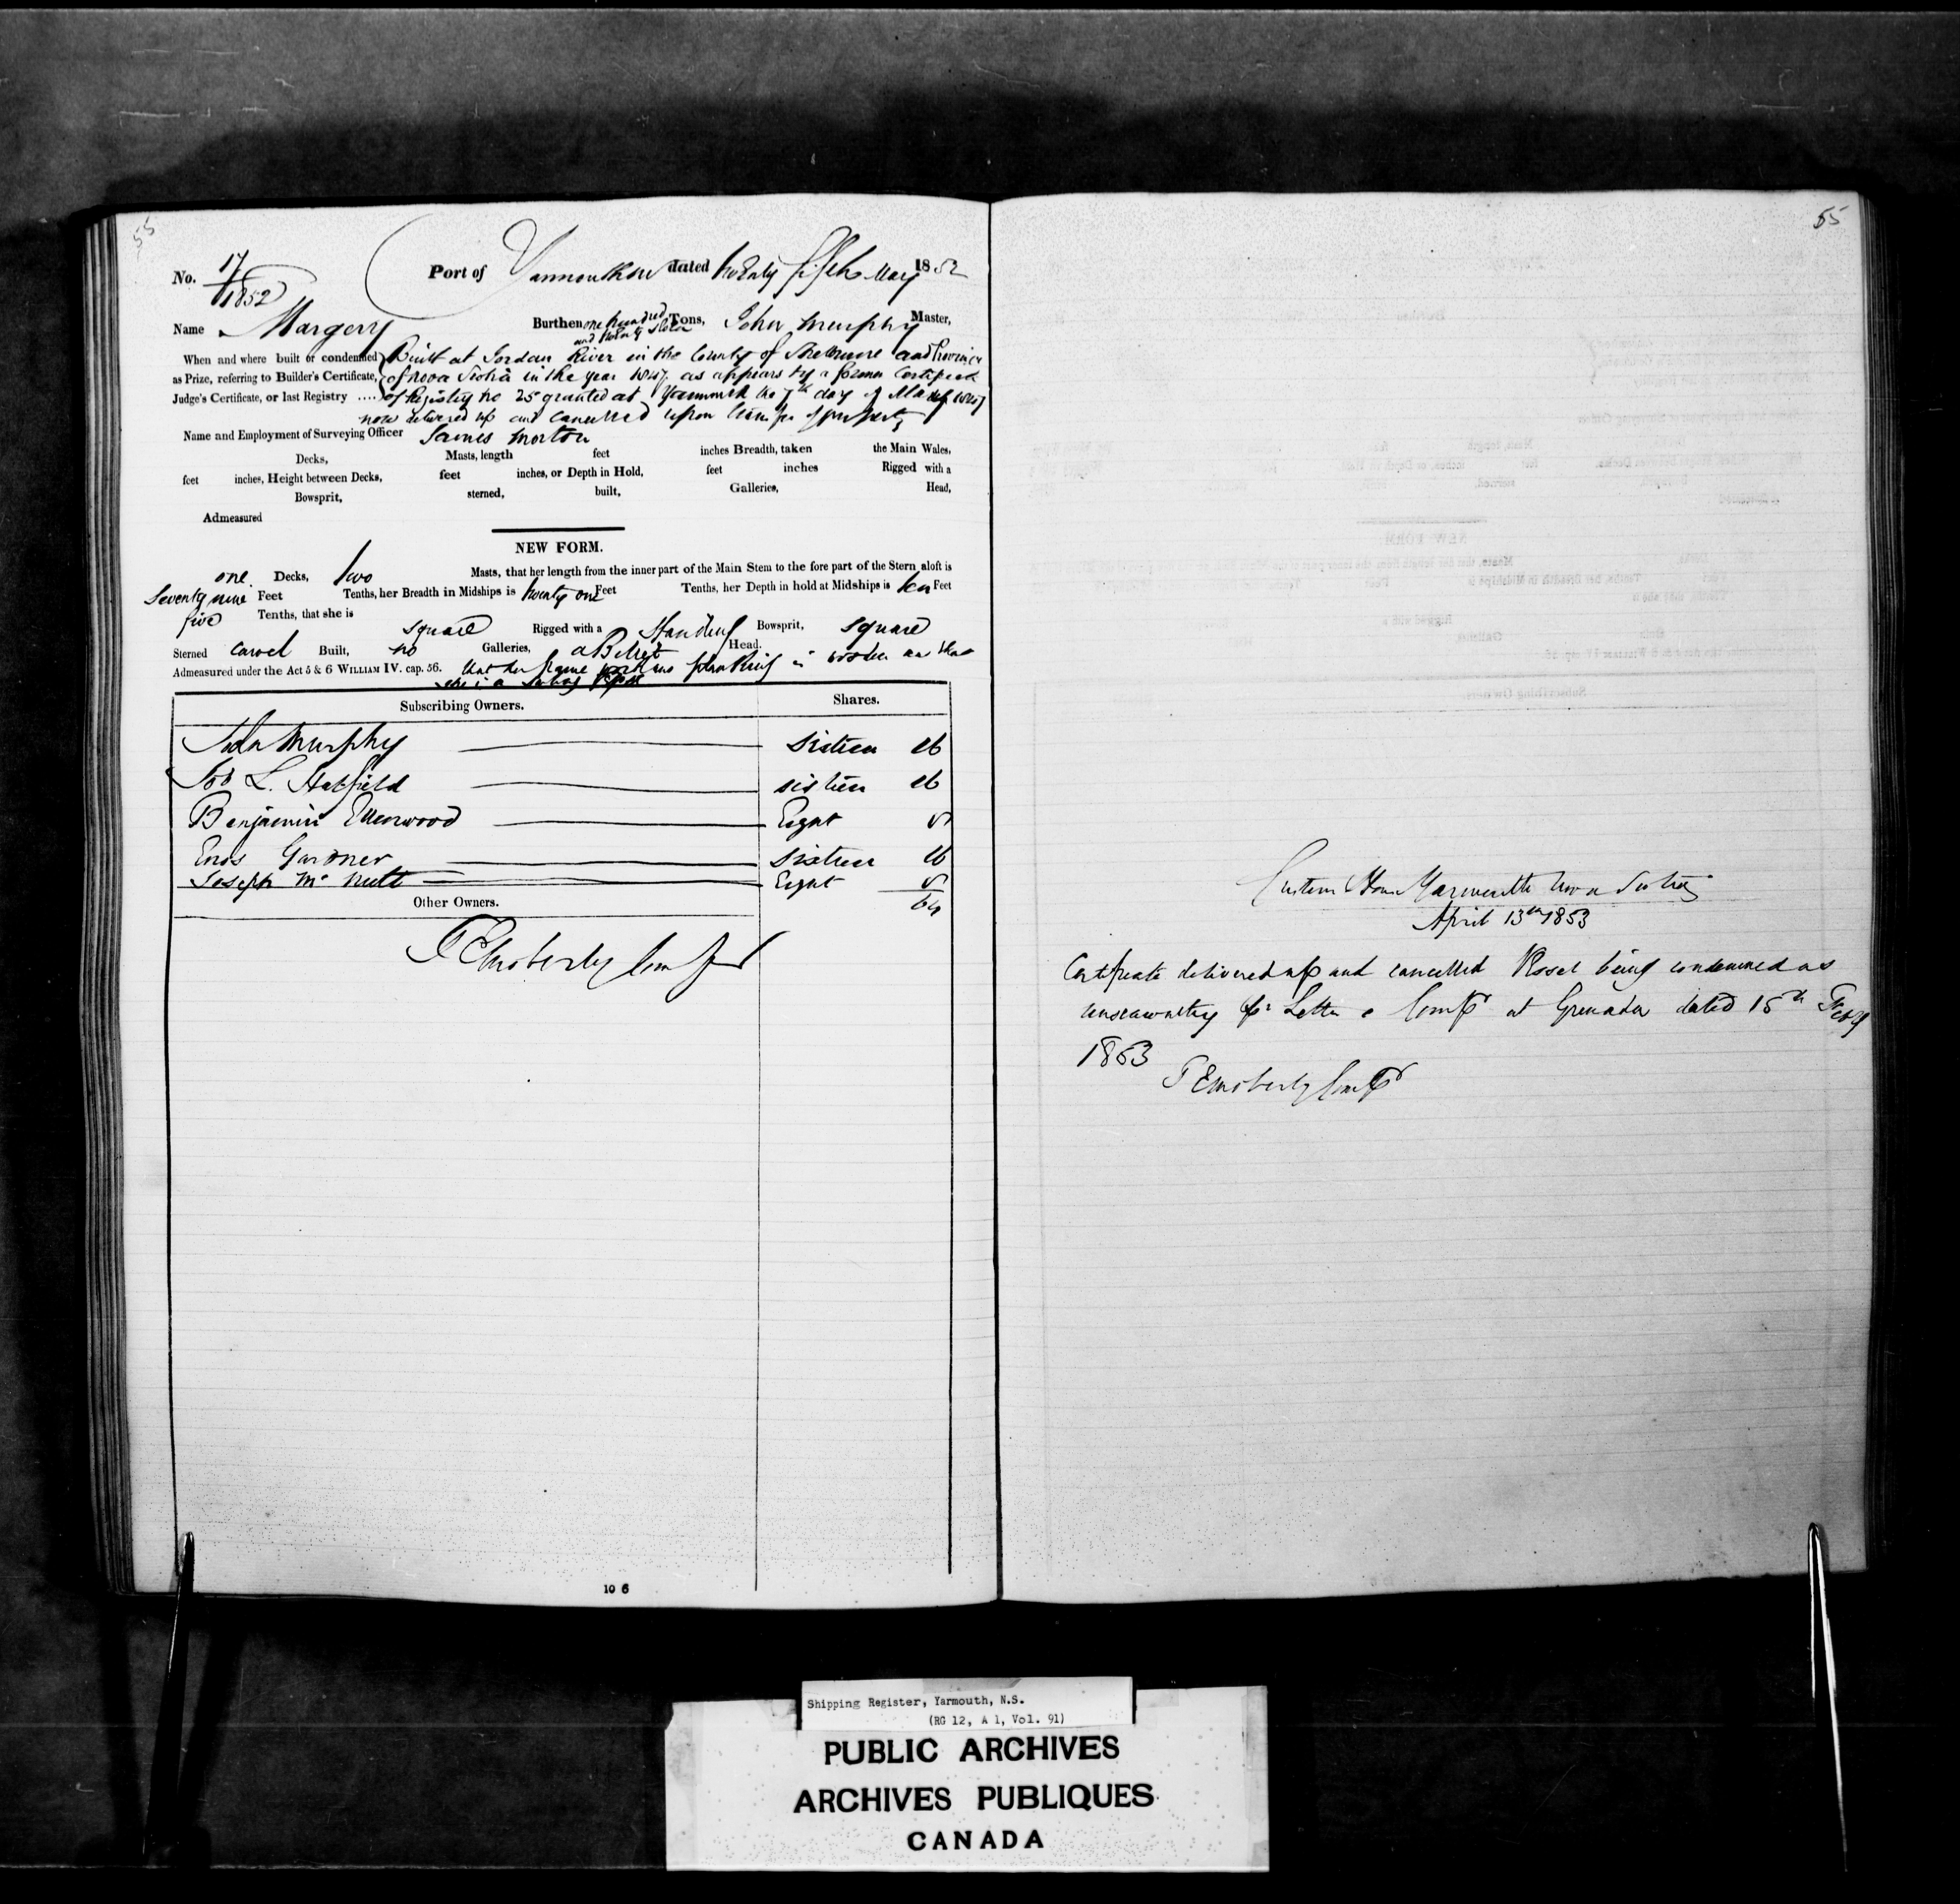 55
No. 17/1852 Port of Yarmouth NS dated twenty fifth May 1852
Name Margery Burthen one hundred and twenty Tons, John Murphy Master,
When and where built or condemned Built at Jordan River in the County of Shelburne and Province
as Prize, referring to Builder's Certificate, of Nova Scotia in the year as appears by a former Certificate
Judge's Certificate, or last Registry .... of Registry No 25 granted at Yarmouth the 7th day of
now delivered up and cancelled upon transfer of property
Name and Employment of Surveying Officer James Morton
Decks, Masts, length feet inches Breadth, taken the Main Wales,
feet inches, Height between Decks, feet inches, or Depth in Hold, feet inches Rigged with a
Bowsprit, sterned, built, Galleries, Head,
Admeasured
NEW FORM.
one Decks, two Masts, that her length from the inner part of the Main Stem to the fore part of the Stern aloft is
Seventy nine Feet Tenths, her Breadth in Midships is twenty one Feet Tenths, her Depth in hold at Midships is ten Feet
five Tenths, that she is square Rigged with a Standing Bowsprit, square
Sterned carvel Built, no Galleries, a Billet Head.
Admeasured under the Act 5 & 6 WILLIAM IV. cap. 56. that her frame work and planking is wooden and that
she is a sailing Vessel
Subscribing Owners. Shares.
John Murphy sixteen 16
Job L. Hatfield sixteen 16
Benjamin Ellenwood Eight 8
Enos Gardner sixteen 16
Joseph Mc Nutt Eight 8
Other Owners. 64
10 6
55
Custom House Yarmouth Nova Scotia
April 13th 1853
Certificate delivered up and cancelled Vessel being condemned as
unseaworthy pr Letter Compr at Grenada dated 15th Feby
1853
Shipping Register, Yarmouth, N.S.
(RG 12, A 1, Vol. 91)
PUBLIC ARCHIVES
ARCHIVES PUBLIQUES
CANADA